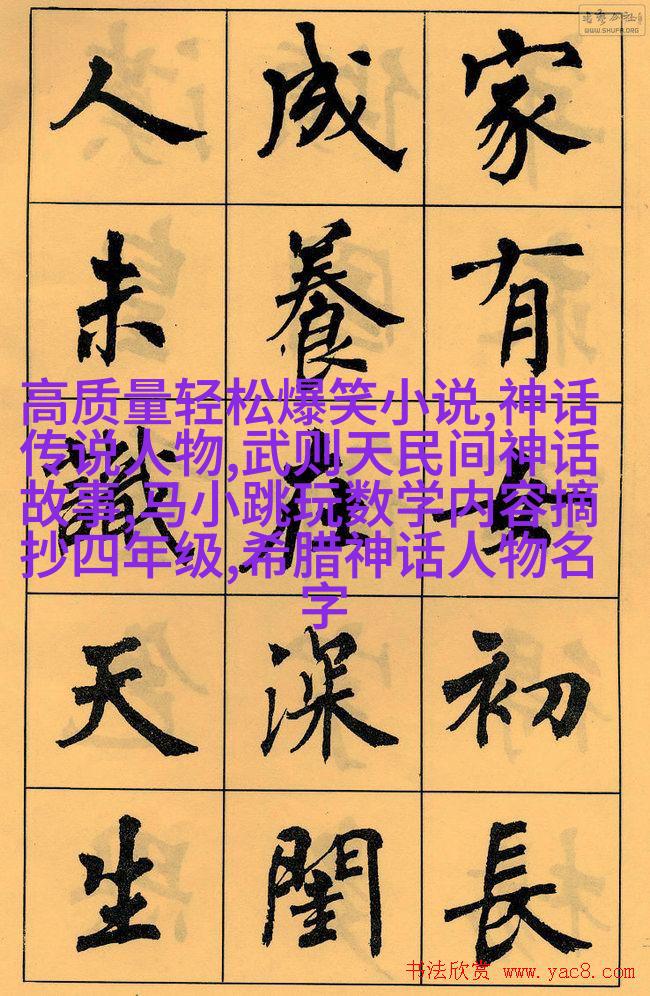 WWW.SHUFA.ORG
家有女初長
成養在深閨
人未識天生
高质量轻松爆笑小说,神话
传说人物,武则天民间神话
故事,马小跳玩数学内容摘
抄四年级,希腊神话人物名
字
书法欣赏 www.yac8.com